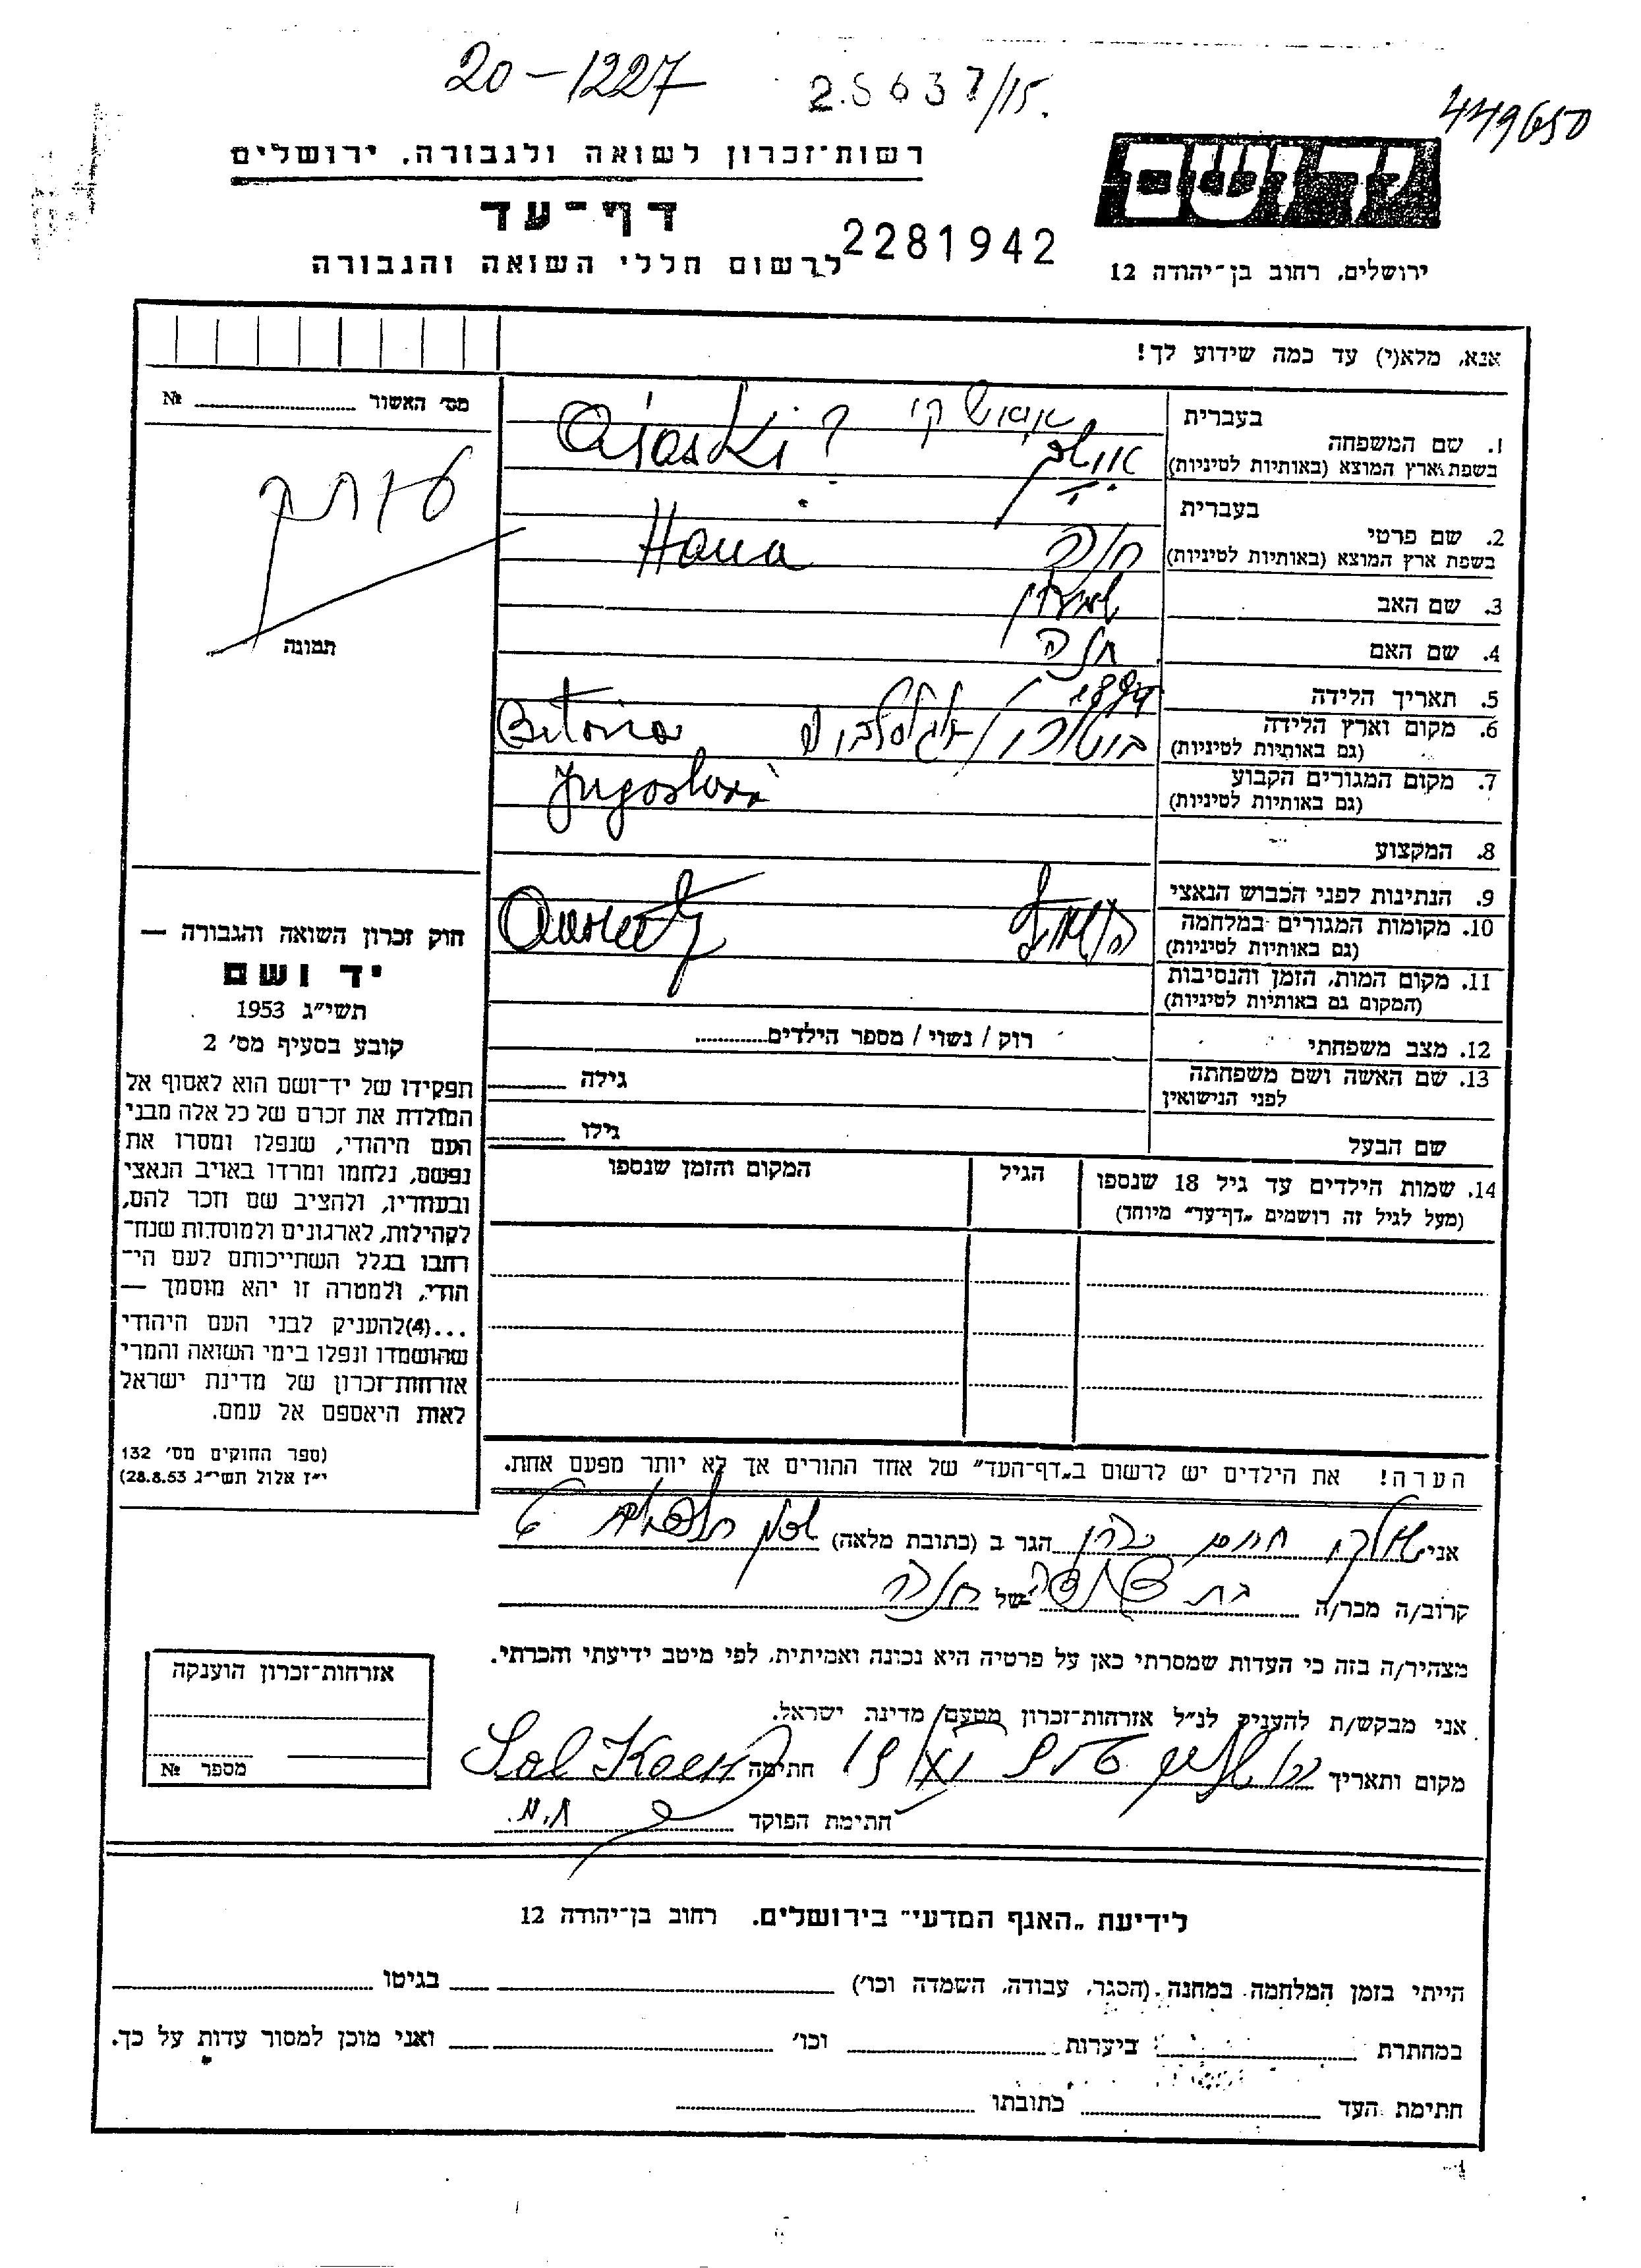 20-1227
25637/15.
449650
יד ושם
רשות־זכרון לשואה ולגבורה, ירושלים
דף־עד
2281942
לרשום חללי השואה והגבורה
ירושלים, רחוב בן־יהודה 12
אנא, מלא(י) עד כמה שידוע לך!
מס׳ האשור № 
תמונה
בעברית
1. שם המשפחה
בשפת ארץ המוצא (באותיות לטיניות)
בעברית
2. שם פרטי חנה Hana
בשפת ארץ המוצא (באותיות לטיניות)
3. שם האב
4. שם האם חנה
5. תאריך הלידה
6. מקום וארץ הלידה
(גם באותיות לטיניות)
7. מקום המגורים הקבוע
(גם באותיות לטיניות)
8. המקצוע
9. הנתינות לפני הכבוש הנאצי
10. מקומות המגורים במלחמה
(גם באותיות לטיניות)
11. מקום המות, הזמן והנסיבות
(המקום גם באותיות לטיניות)
12. מצב משפחתי רוק / נשוי / מספר הילדים
13. שם האשה ושם משפחתה גילה
לפני הנישואין
שם הבעל גילו
14. שמות הילדים עד גיל 18 שנספו הגיל המקום והזמן שנספו
(מעל לגיל זה רושמים „דף־עד״ מיוחד)
חוק זכרון השואה והגבורה —
יד ושם
תשי״ג 1953
קובע בסעיף מס׳ 2
תפקידו של יד־ושם הוא לאסוף אל
המולדת את זכרם של כל אלה מבני
העם היהודי, שנפלו ומסרו את
נפשם, נלחמו ומרדו באויב הנאצי
ובעוזריו, ולהציב שם וזכר להם,
לקהילות, לארגונים ולמוסדות שנח־
רחבו בגלל השתייכותם לעם הי־
הודי, ולמטרה זו יהא מוסמך —
...(4) להעניק לבני העם היהודי
שהושמדו ונפלו בימי השואה והמרי
אזרחות־זכרון של מדינת ישראל
לאות היאספם אל עמם.
(ספר החוקים מס׳ 132
י״ז אלול תשי״ג 28.8.53)
הערה! את הילדים יש לרשום ב„דף־העד״ של אחד ההורים אך לא יותר מפעם אחת.
אני הגר ב (כתובת מלאה)
קרוב/ה מכר/ה של חנה
מצהיר/ה בזה כי העדות שמסרתי כאן על פרטיה היא נכונה ואמיתית, לפי מיטב ידיעתי והכרתי.
אני מבקש/ת להעניק לנ״ל אזרחות־זכרון מטעם מדינת ישראל.
מקום ותאריך חתימה
חתימת הפוקד
אזרחות־זכרון הוענקה
מספר №
לידיעת „האגף המדעי״ בירושלים. רחוב בן־יהודה 12
הייתי בזמן המלחמה במחנה (הסגר, עבודה, השמדה וכו׳) בגיטו
במחתרת ביערות וכו׳ ואני מוכן למסור עדות על כך.
חתימת העד כתובתו